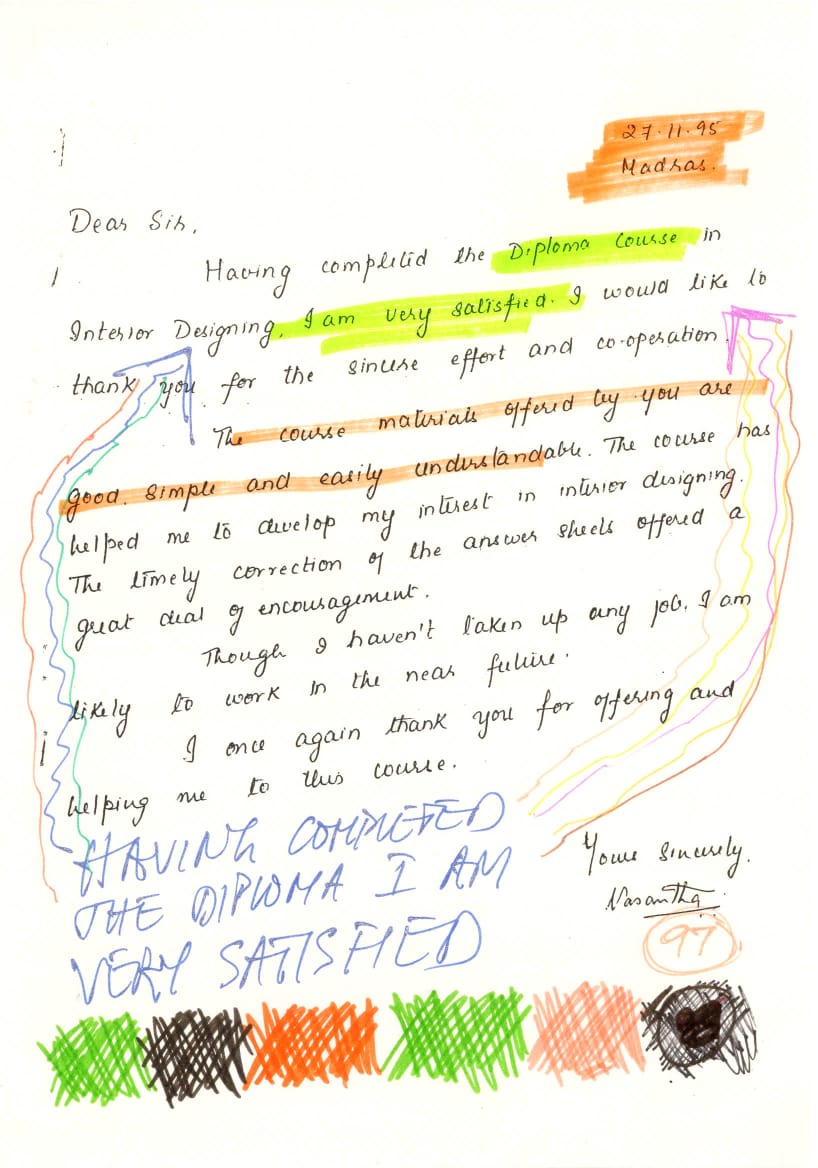 27.11.95
Madras.
Dear Sir,
Having completed the Diploma Course in
Interior Designing, I am very satisfied. I would like to
thank you for the sincere effort and co-operation.
The course materials offered by you are
good, simple and easily understandable. The course has
helped me to develop my interest in interior designing.
The timely correction of the answer sheets offered a
great deal of encouragement.
Though I haven't taken up any job, I am
likely to work in the near future.
I once again thank you for offering and
helping me to this course.
HAVING COMPLETED
THE DIPLOMA I AM
VERY SATISFIED
Yours sincerely,
Vasantha
97